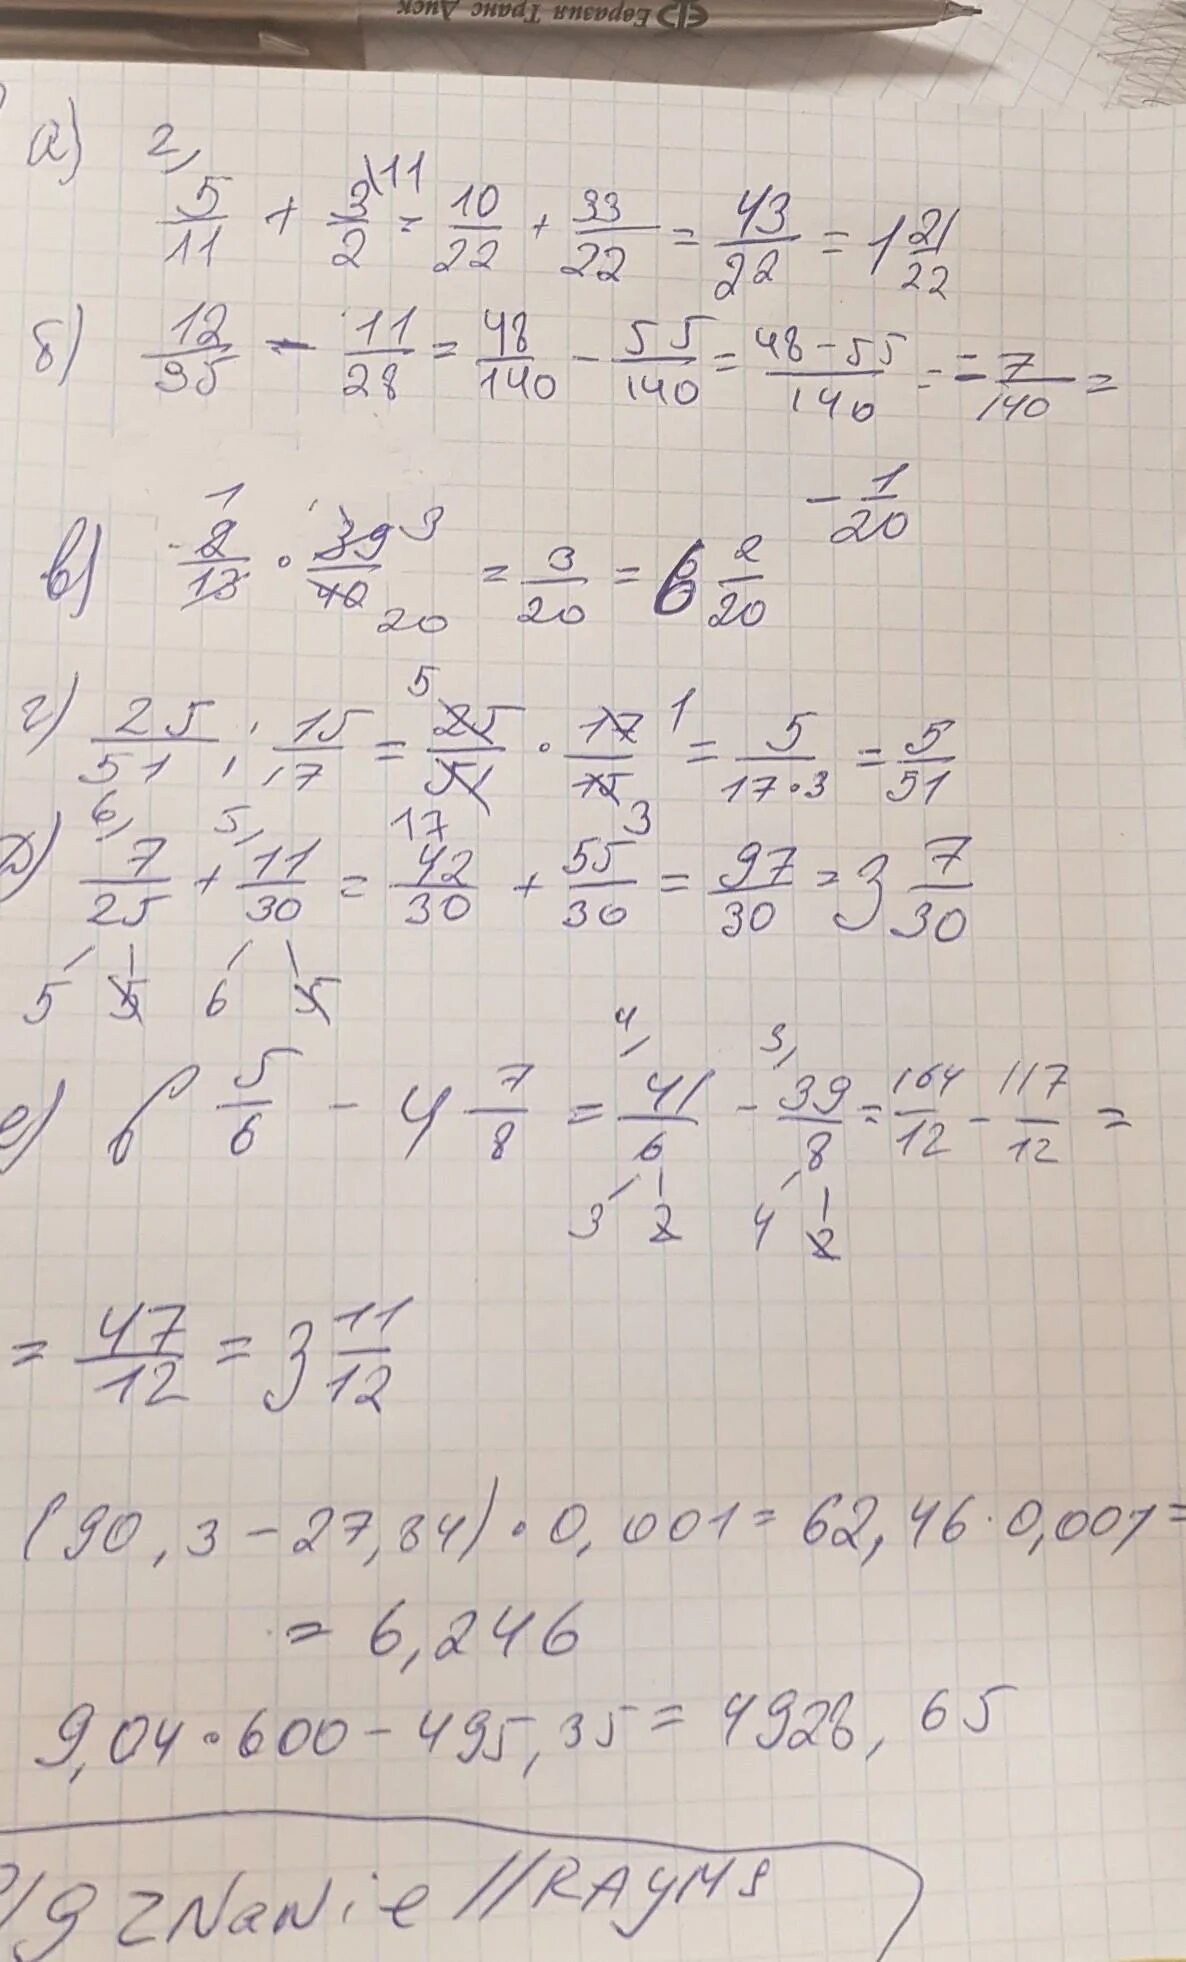 Евразия Транс Диск
а) 5/11 + 3/2 = 10/22 + 33/22 = 43/22 = 1 21/22
б) 12/35 - 11/28 = 48/140 - 55/140 = 48-55/140 = -7/140 =
- 1/20
в) 2/13 · 39/40 = 3/20 = 6 2/20
г) 25/51 : 15/17 = 25/51 · 17/15 = 5/17·3 = 5/51
д) 7/25 + 11/30 = 42/30 + 55/30 = 97/30 = 3 7/30
5 5 6 5
е) 6 5/6 - 4 7/8 = 41/6 - 39/8 = 164/12 - 117/12 =
3 2 4 2
= 47/12 = 3 11/12
(90,3 - 27,84) · 0,001 = 62,46 · 0,001 =
= 6,246
9,04 · 600 - 495,35 = 4928,65
ZNaNie // RAYMS